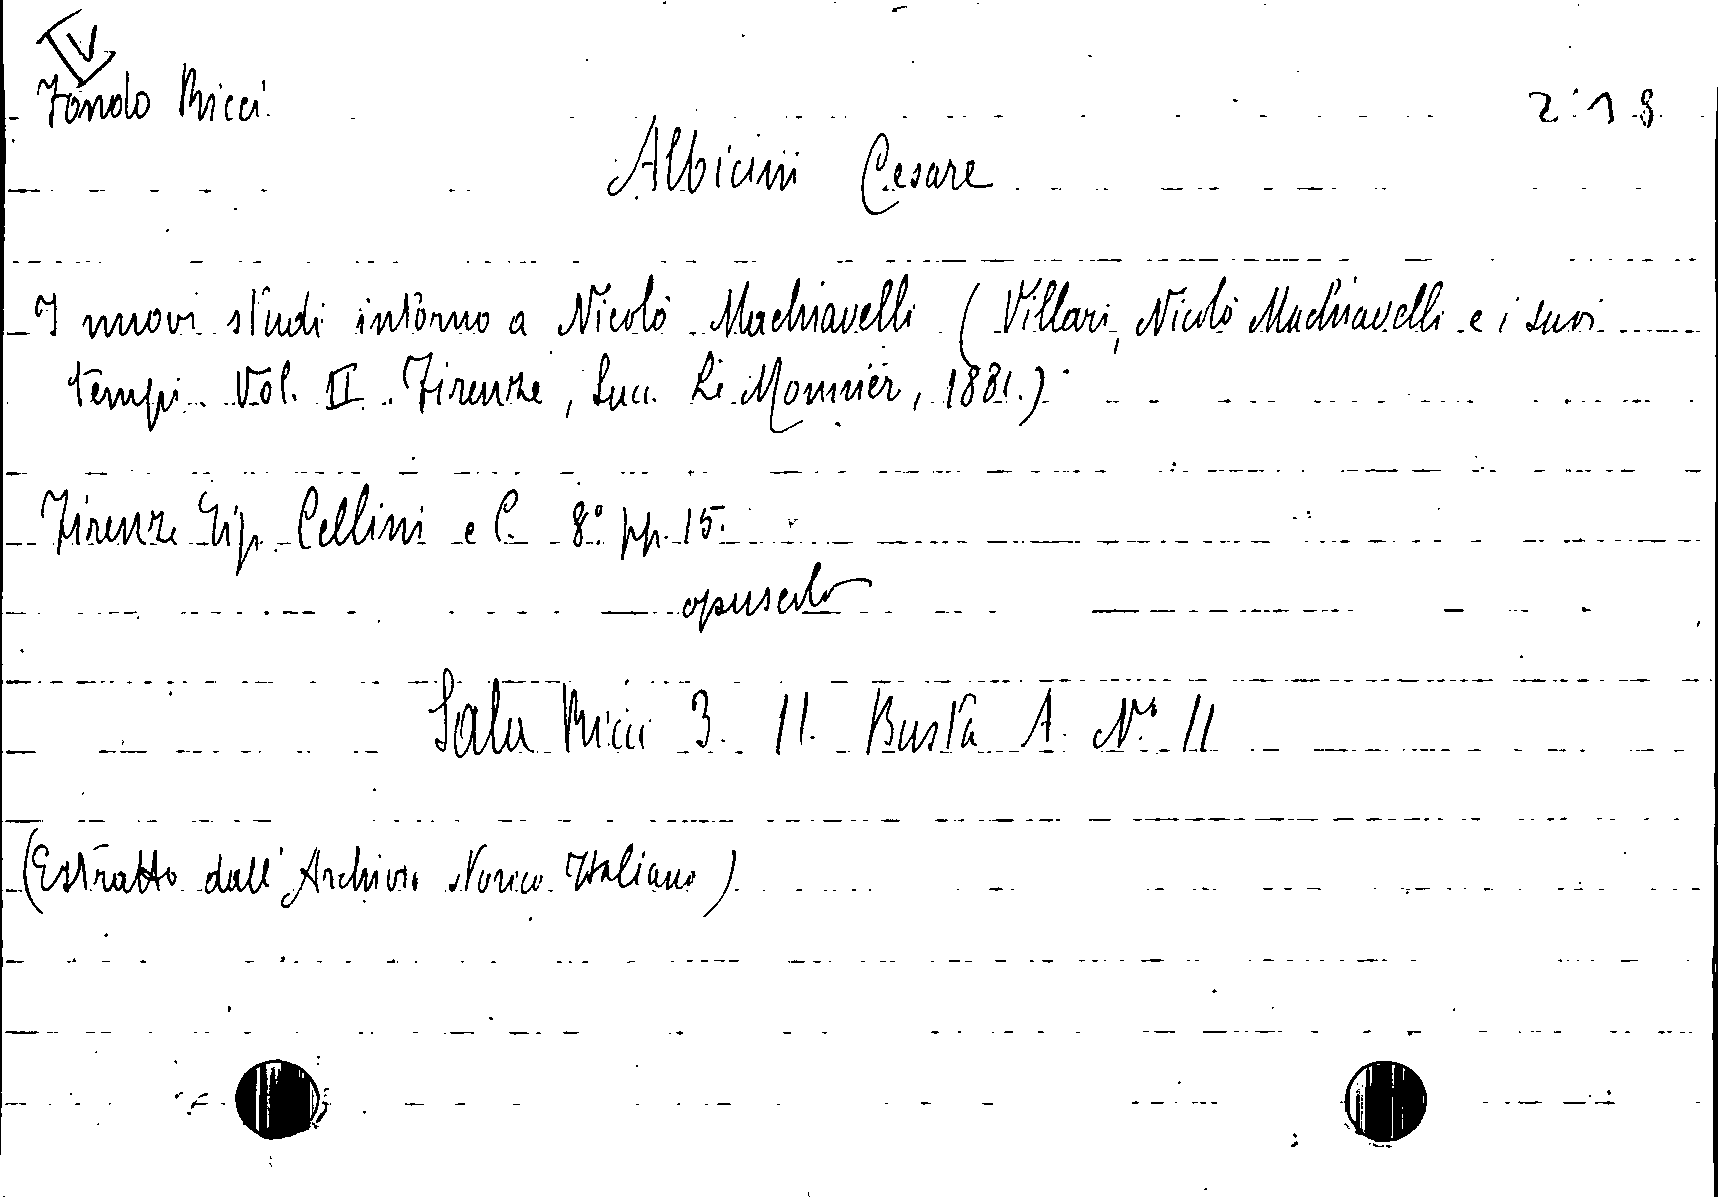 V
Fondo Ricci
2:18
Albicini Cesare
I nuovi studi intorno a Nicolò Machiavelli (Villari, Nicolò Machiavelli e i suoi
tempi. Vol. II. Firenze, Succ. Le Monnier, 1881.)
Firenze Tip. Cellini e C. 8° pp. 15.
opuscolo
Sala Ricci 3. 11. Busta A. N° 11
(Estratto dall'Archivio storico Italiano)